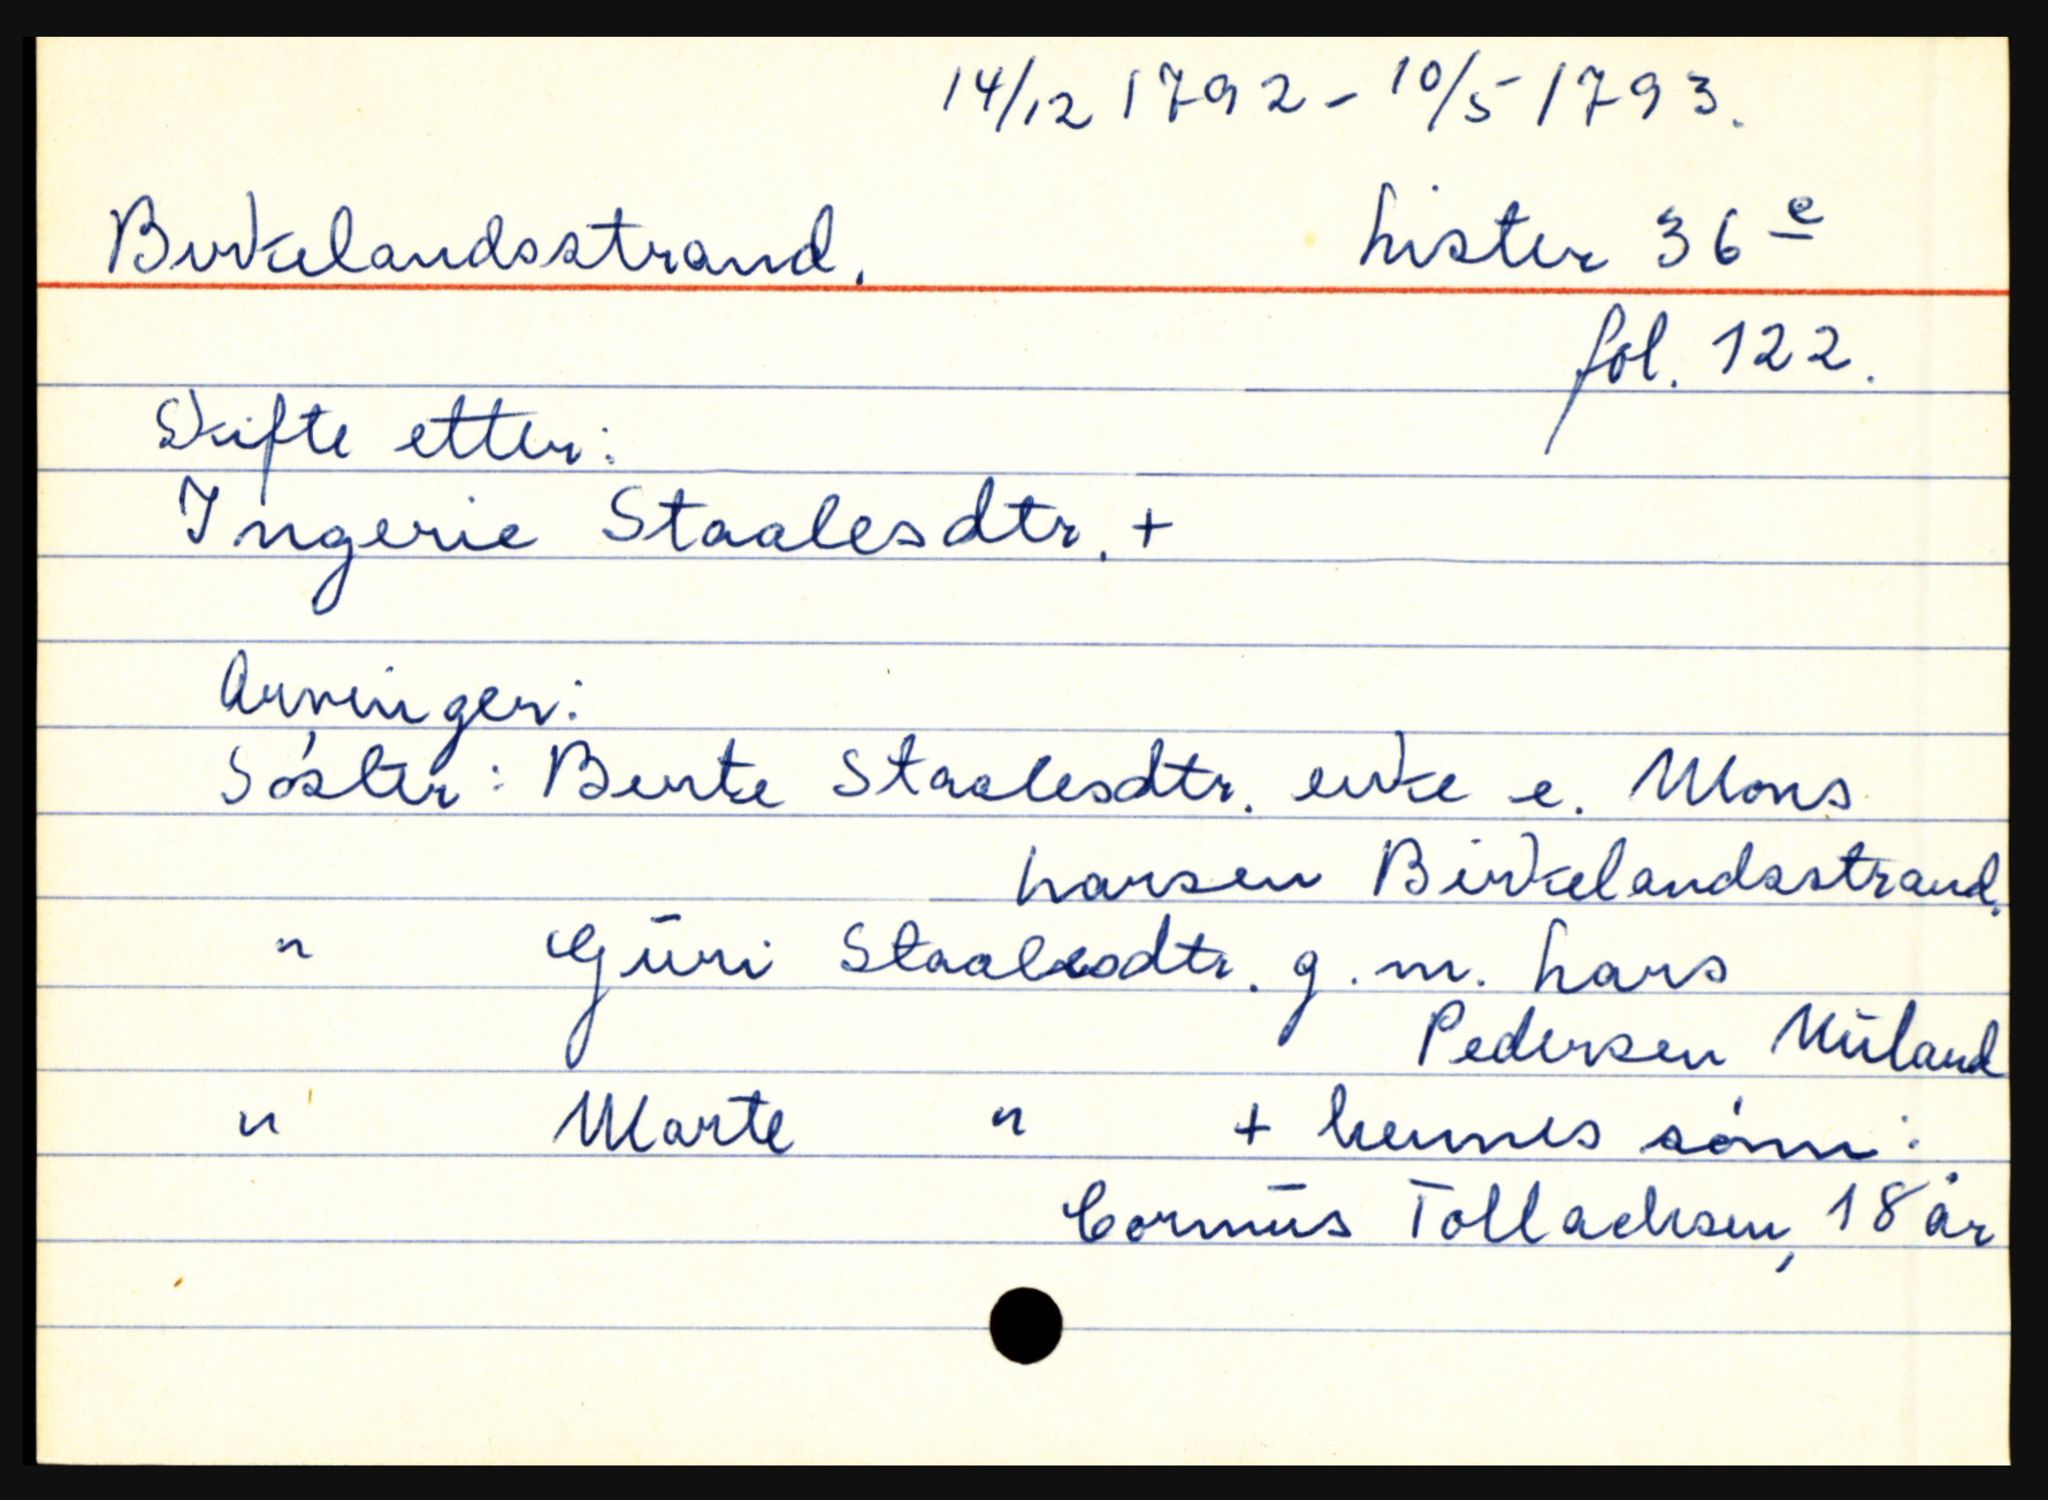 14/12 1792 - 10/5 1793.
Birkelandsstrand. Lister 36 e
fol. 122.
Skifte etter:
Ingerie Staalesdtr. +
Arvinger:
Söster: Berte Staalesdtr. enke e. Mons
Larsen Birkelandsstrand.
" Guri Staalesdtr. g. m. Lars
Pedersen Miland
" Marte " + hennes sönn:
Cornius Tollachsen, 18 år